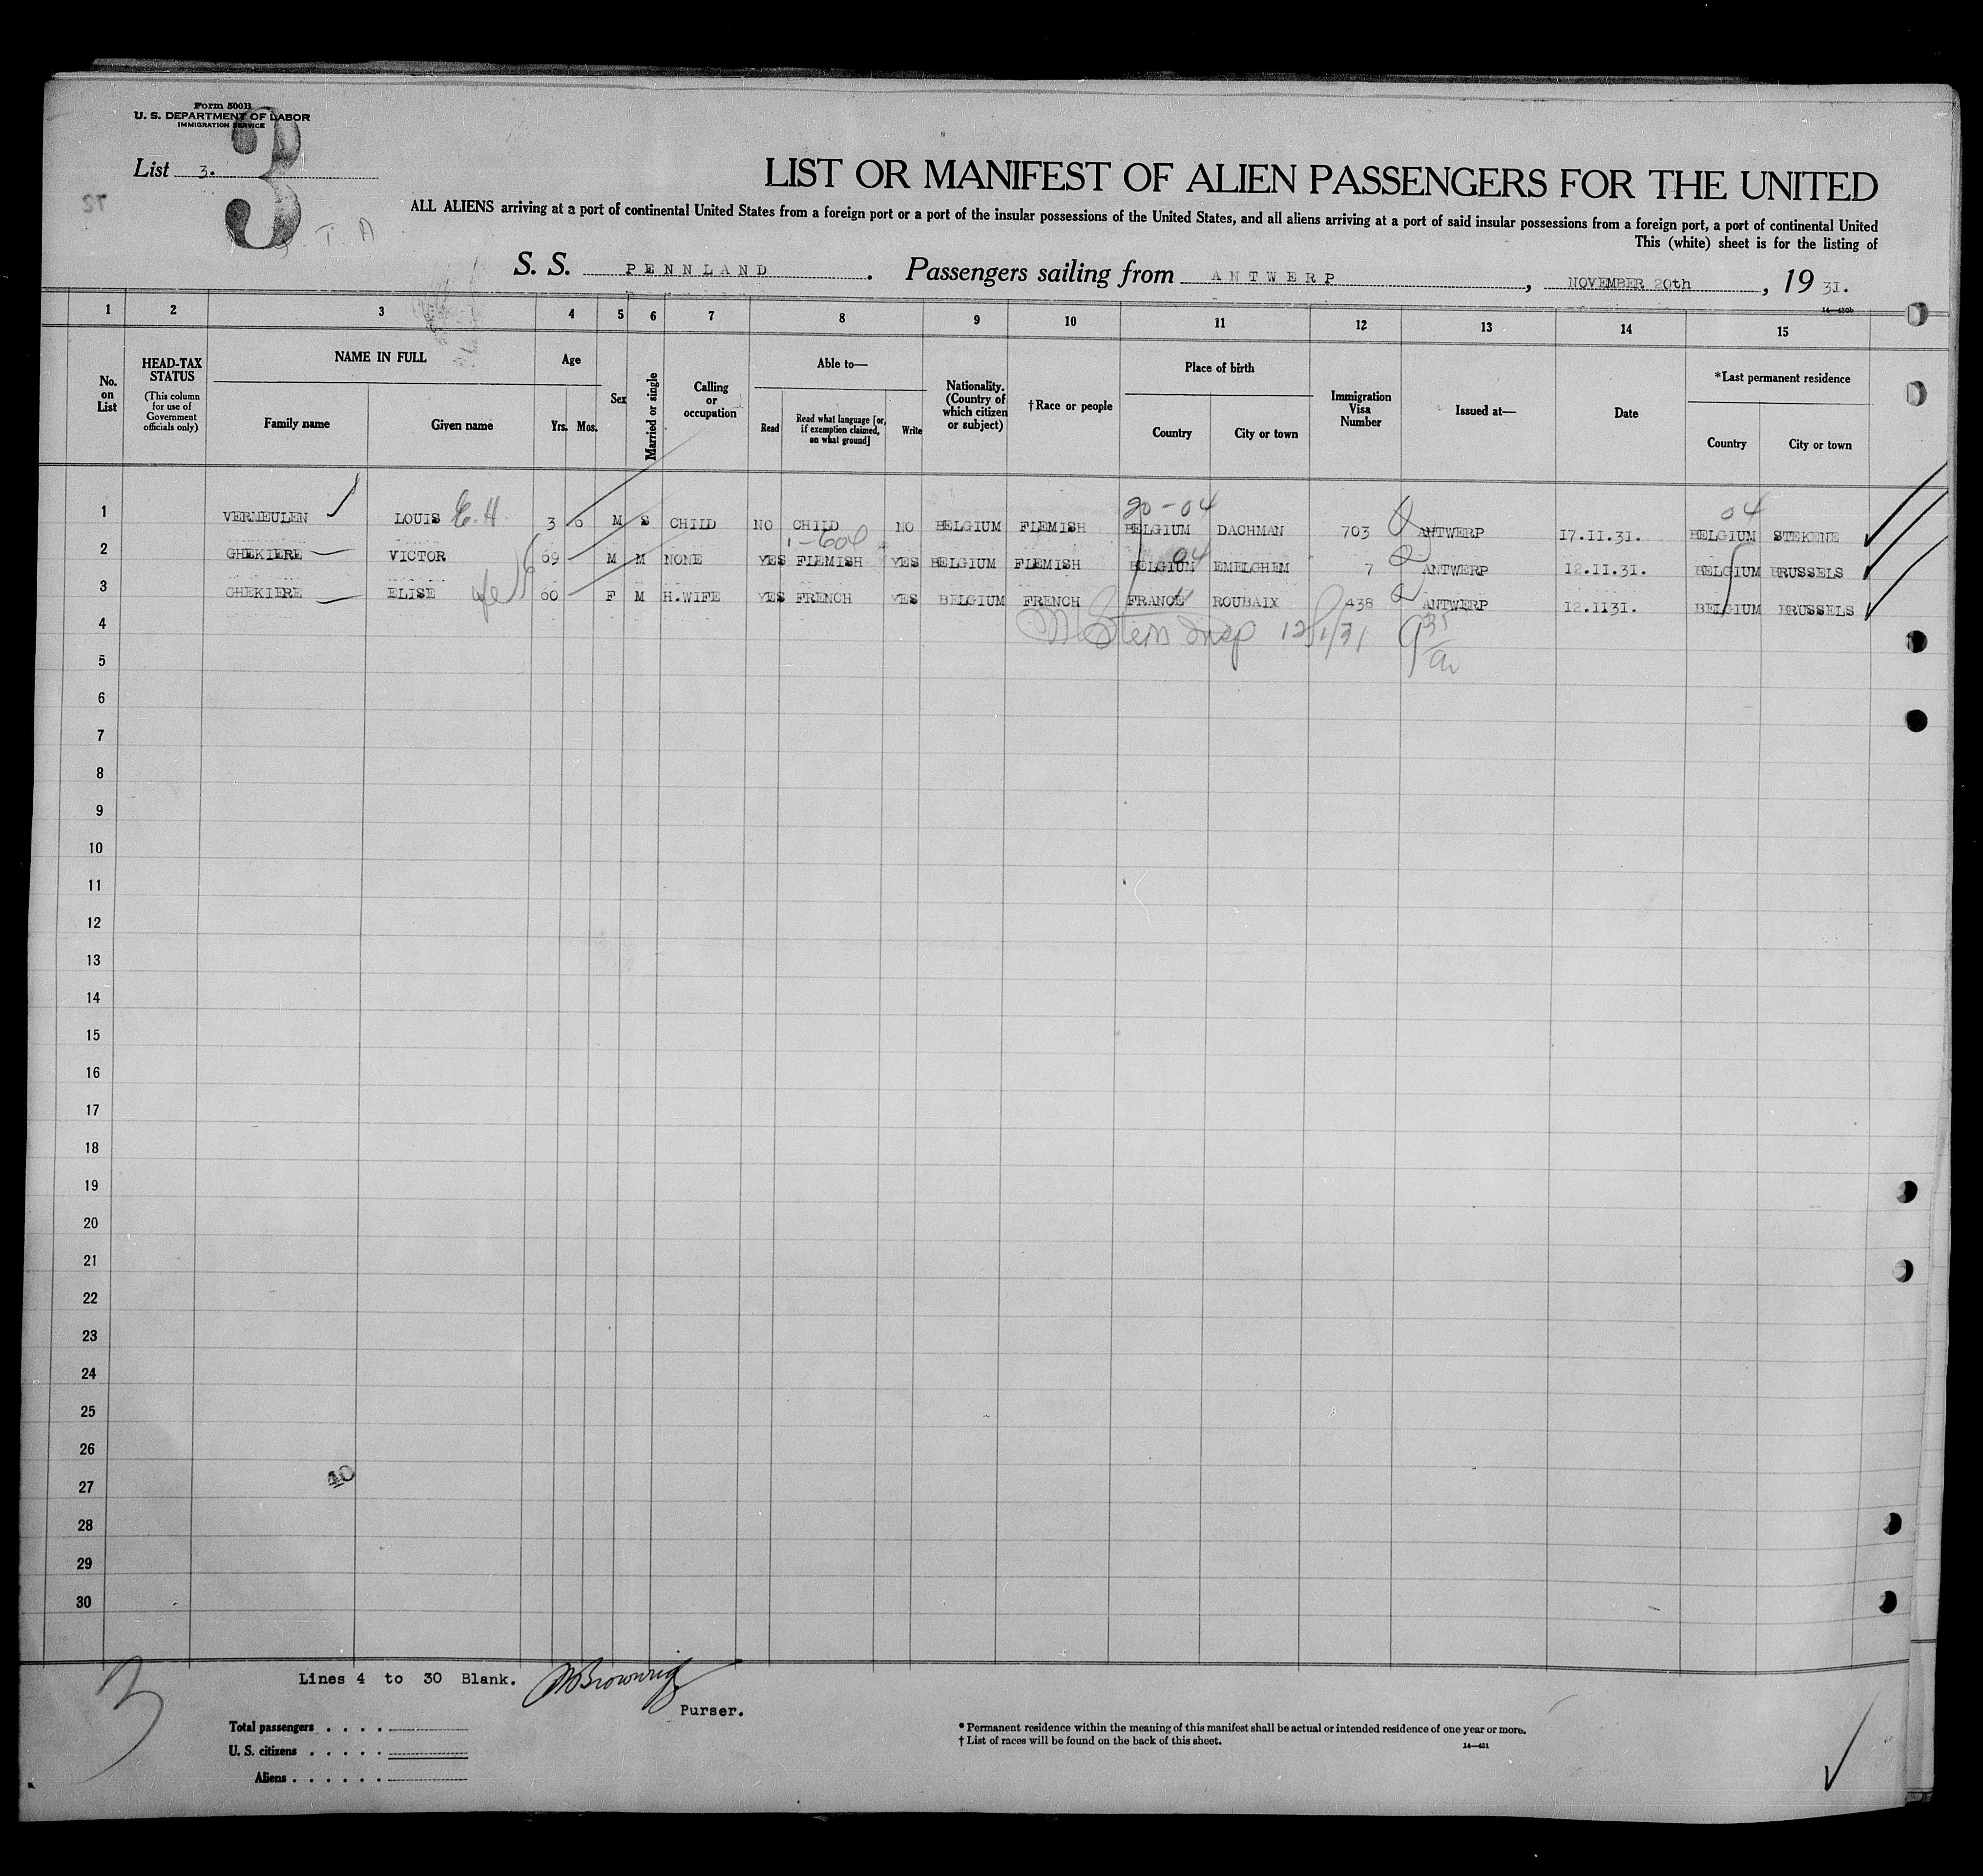 Form 500B
U. S. DEPARTMENT OF LABOR
IMMIGRATION SERVICE
3
List 3.
ST
T A
LIST OR MANIFEST OF ALIEN PASSENGERS FOR THE UNITED
ALL ALIENS arriving at a port of continental United States from a foreign port or a port of the insular possessions of the United States, and all aliens arriving at a port of said insular possessions from a foreign port, a port of continental United
This (white) sheet is for the listing of
S. S. PENNLAND. Passengers sailing from ANTWERP, NOVEMBER 20th, 19 31.
14—430b
1 2 3 4 5 6 7 8 9 10 11 12 13 14 15
No. on List
HEAD-TAX STATUS (This column for use of Government officials only)
NAME IN FULL Family name Given name
Age Yrs. Mos.
Sex
Married or single
Calling or occupation
Able to— Read Read what language [or, if exemption claimed, on what ground] Write
Nationality. (Country of which citizen or subject)
†Race or people
Place of birth Country City or town
Immigration Visa Number
Issued at—
Date
*Last permanent residence Country City or town
20-04 04
1 VERMEULEN LOUIS E.H. 3 6 M S CHILD NO CHILD NO BELGIUM FLEMISH BELGIUM DACHMAN 703 ANTWERP 17.11.31. BELGIUM STEKENE
1-604 04
2 GHEKIERE VICTOR 69 M M NONE YES FLEMISH YES BELGIUM FLEMISH BELGIUM EMELGHEM 7 ANTWERP 12.11.31. BELGIUM BRUSSELS
3 GHEKIERE ELISE 60 F M H.WIFE YES FRENCH YES BELGIUM FRENCH FRANCE ROUBAIX 438 ANTWERP 12.1131. BELGIUM BRUSSELS
4 Stern Insp 12/1/31 9 35
5
6
7
8
9
10
11
12
13
14
15
16
17
18
19
20
21
22
23
24
25
26
40
27
28
29
30
3
Lines 4 to 30 Blank.
Purser.
Total passengers . . . .
U. S. citizens . . . . .
Aliens . . . . . .
* Permanent residence within the meaning of this manifest shall be actual or intended residence of one year or more.
† List of races will be found on the back of this sheet.
14—431